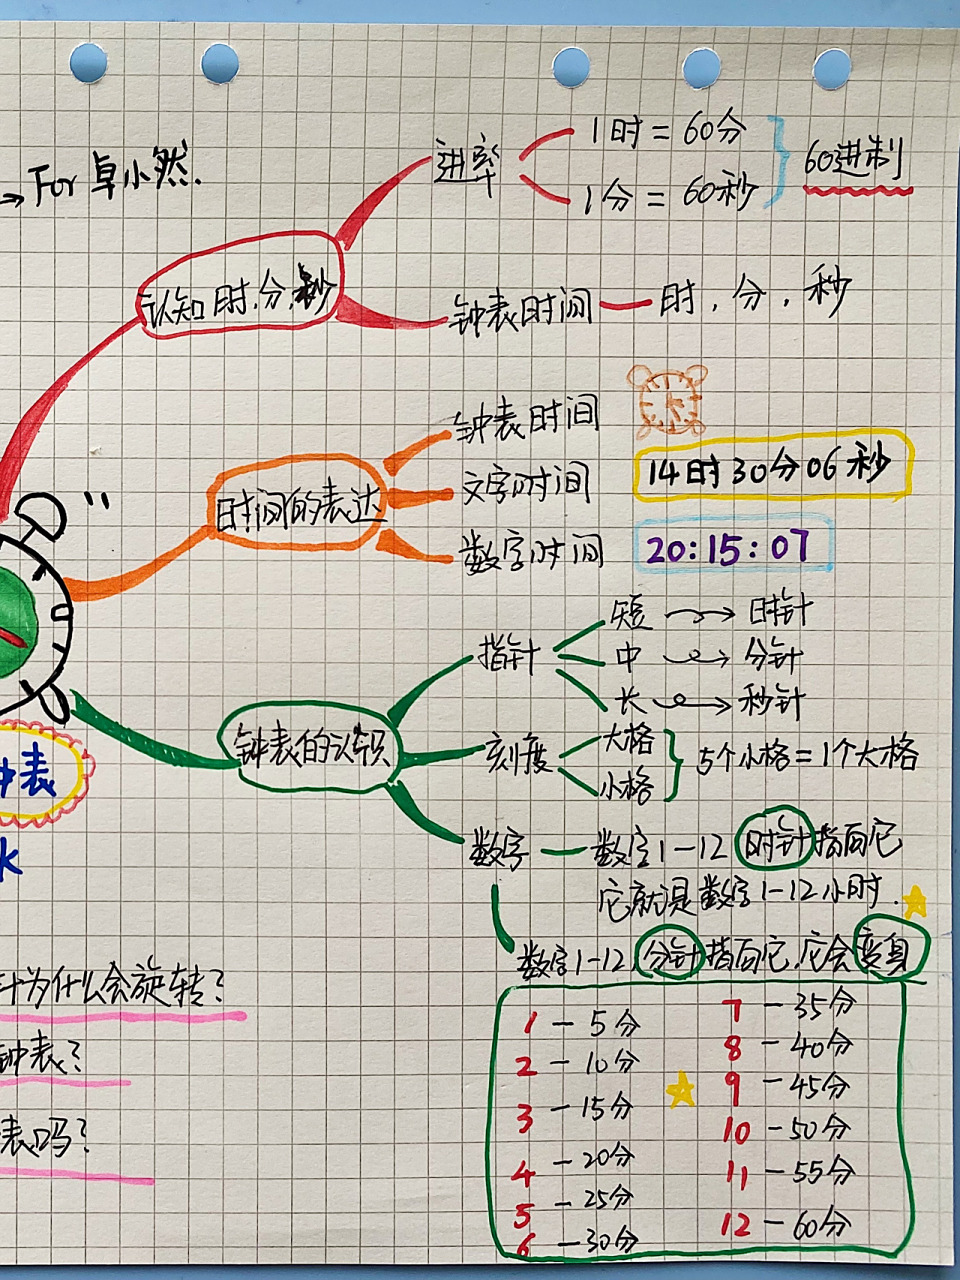 →For 卓小然.
进率
1时 = 60分
1分 = 60秒
60进制
认知时.分.秒
钟表时间
时.分.秒
时间的表达
钟表时间
文字时间
14时30分06秒
数字时间
20:15:07
钟表的认识
指针
短 → 时针
中 → 分针
长 → 秒针
刻度
大格
小格
5个小格=1个大格
数字
数字1-12 时针指向它
它就是数字1-12小时.
数字1-12,分针指向它,它会变身
1 - 5分
2 - 10分
3 - 15分
4 - 20分
5 - 25分
6 - 30分
7 - 35分
8 - 40分
9 - 45分
10 - 50分
11 - 55分
12 - 60分
钟表
针为什么会旋转?
钟表?
表吗?